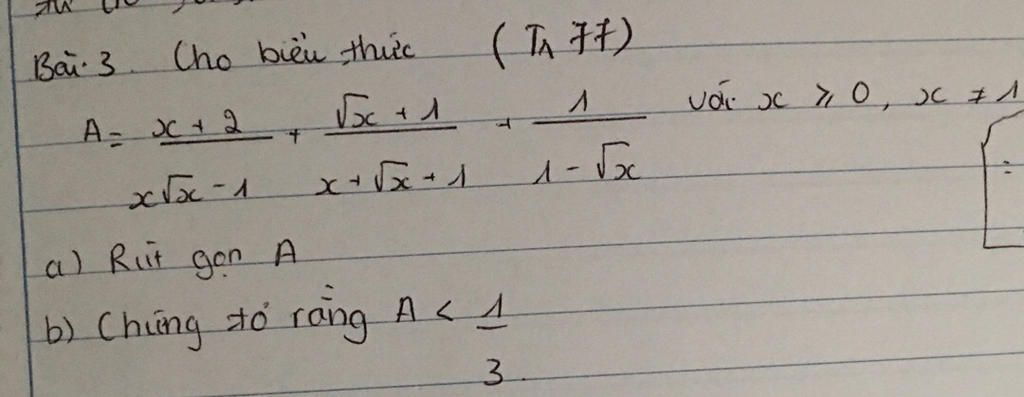 Bài 3. Cho biểu thức (TA 77)
A = x + 2 / x√x - 1 + √x + 1 / x + √x + 1 + 1 / 1 - √x với x ≥ 0, x ≠ 1
a) Rút gọn A
b) Chứng tỏ rằng A < 1/3.